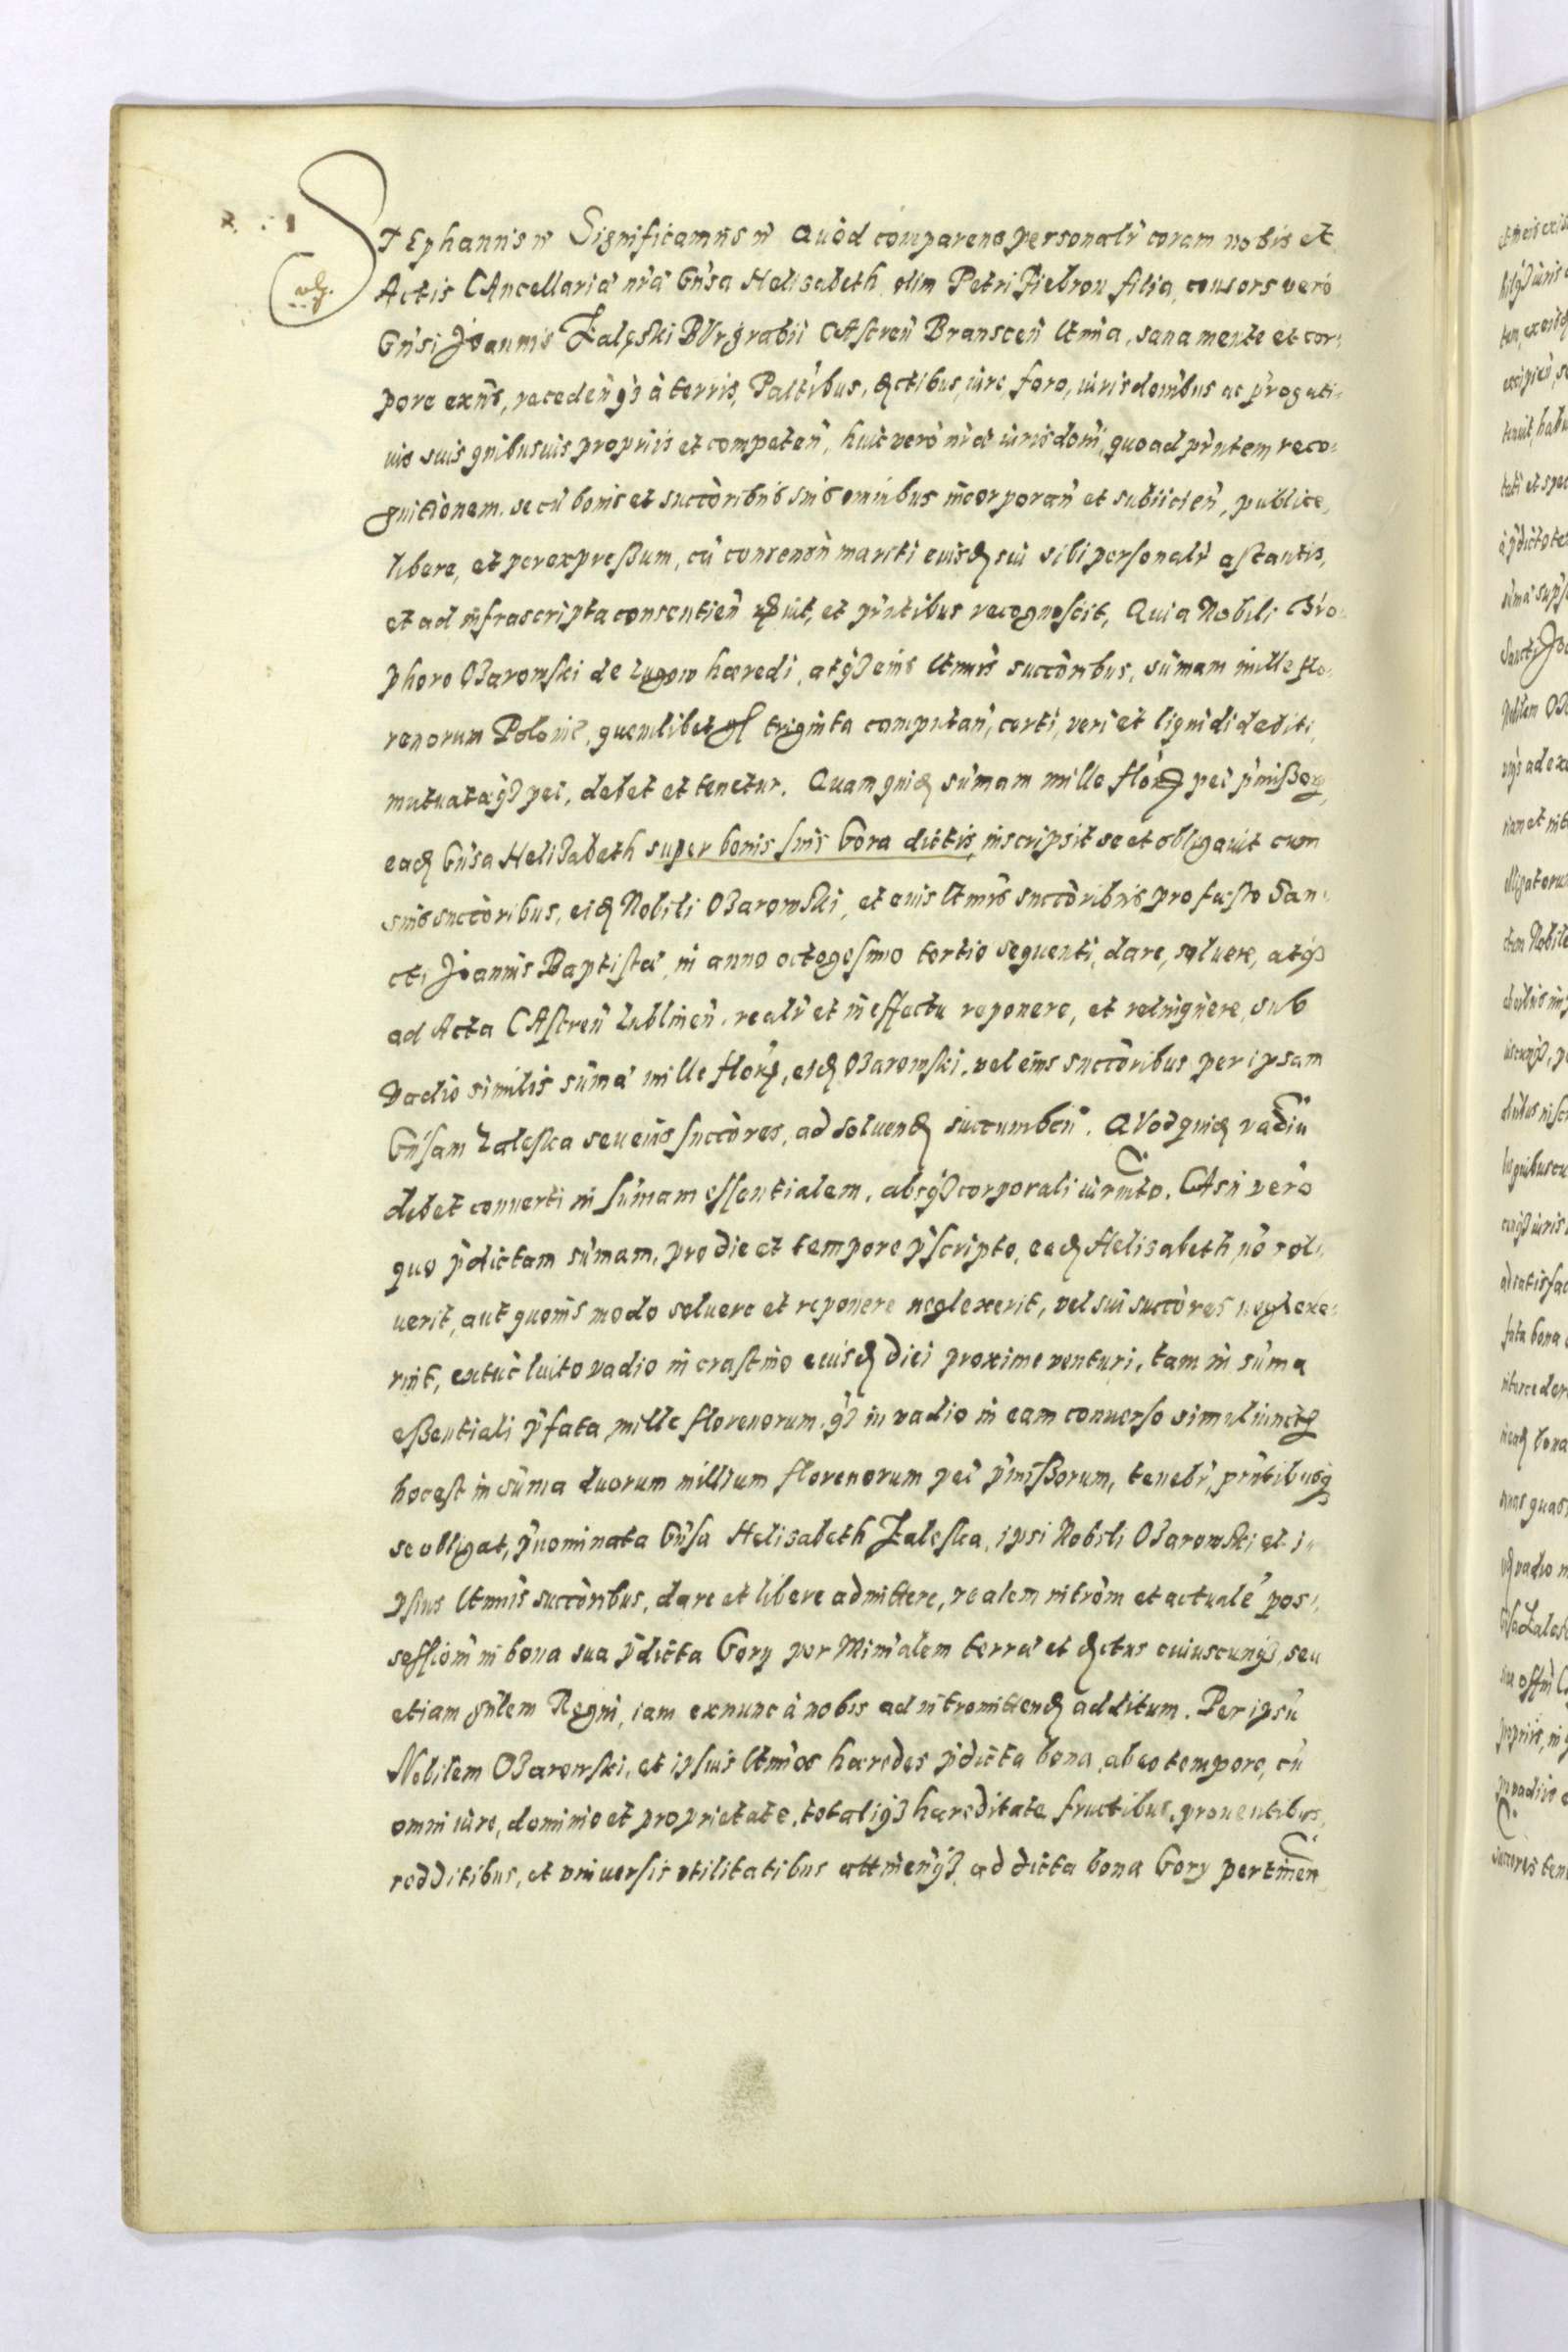 STEphanus etc Significamus etc Quod comparens personalr coram nobis et
Actis CAncellariæ nræ Gnsa Helisabeth olim Petri Fiebron filia, consors vero
Gnsi Joannis Zalęski BUrgrabii CAstren Branscen ltma, sana mente et cor:
pore exns, recedenqз à terris, Paltibus, districtibus, iure, foro, iurisdonibus ac progati:
uis suis quibusuis propriis et competen, huic vero nræ iurisdoni, quoad prntem reco:
gnitionem, se cu bonis et succoribus suis omnibus incorporan et subiicien, publice,
libere, et per expreßum, cu consensu mariti eiusd sui sibi personalr astantis,
et ad infrascripta consentien, et prntibus recognoscit, Quia Nobili Chro
phoro OЗarowski de Lugow hæredi, atqз eius ltmis succoribus, sumam mille flo:
renorum Polonic, quemlibet triginta computan, certi, veri et liquidi debiti,
mutuatæqз pec, debet et tenetur. Quam quid sumam mille flor pec pmißor,
ead Gnsa HeliЗabeth super bonis suis Gora dictis, inscripsit se et obligauit cum
suis succoribus, eid Nobili OЗarowski, et euis ltmis succoribus pro festo San:
cti Joannis Baptistæ, in anno octogesimo tertio sequenti, dare, soluere, atqз
ad Acta CAstren Lublinen, realr et in effectu reponere, et relinquere, sub
vadio similis sumæ mille flor, eid OЗarowski, vel eius succoribus per ipsam
Gnsam Zaleska seu eius succores, ad soluend succumben. QVod quid vadiu
debet conuerti in sumam essentialem, absqз corporali iurmto. CAsu vero
quo pdictam sumam, pro die et tempore pscripto, ead Helisabeth, no sol:
uerit, aut quouis modo soluere et reponere neglexerit, vel sui succores neglexe:
rint, extuc luito vadio in crastino eiusd diei proxime venturi, tam in suma
eßentiali pfata mille florenorum, qз in vadio in eam conuerso simul iunct
hoc est in suma duorum millium florenorum pec pmißorum, tenebr, prntibusq
se obligat, pnominata Gnsa Helisabeth Zaleska, ipsi Nobili OЗarowski et i:
psius ltmis succoribus, dare et libere admittere, realem introm et actuale pos:
sessiom in bona sua pdicta Gory per Minialem terræ et ditus cuiuscunqз, seu
etiam gnlem Regni, iam exnunc à nobis ad intromittend additum. Per ipsu
Nobilem OЗarowski, et ipsius ltmos hæredes pdicta bona, ab eo tempore, cu
omni iure, dominio et proprietate, totaliqз hæreditate fructibus, prouentibus,
redditibus, et vniuersis vtilitatibus attinenqз ad dicta bona Gory pertinen